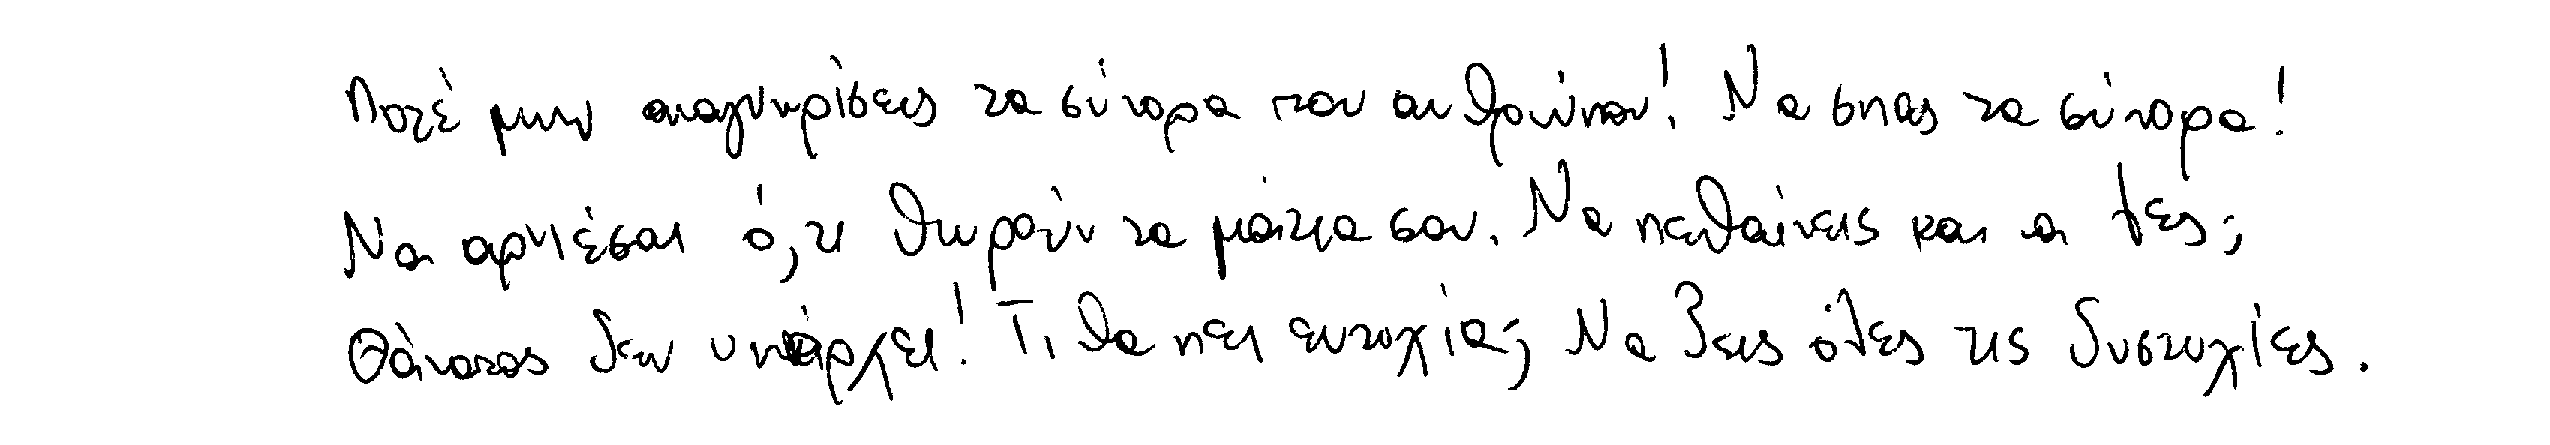 Ποτέ μην αναγνωρίσεις τα σύνορα του ανθρώπου! Να σπας τα σύνορα!
Να αρνιέσαι ό,τι θωρούν τα μάτια σου. Να πεθαίνεις και να λες:
Θάνατος δεν υπάρχει! Τι θα πει ευτυχία; Να ζεις όλες τις δυστυχίες.